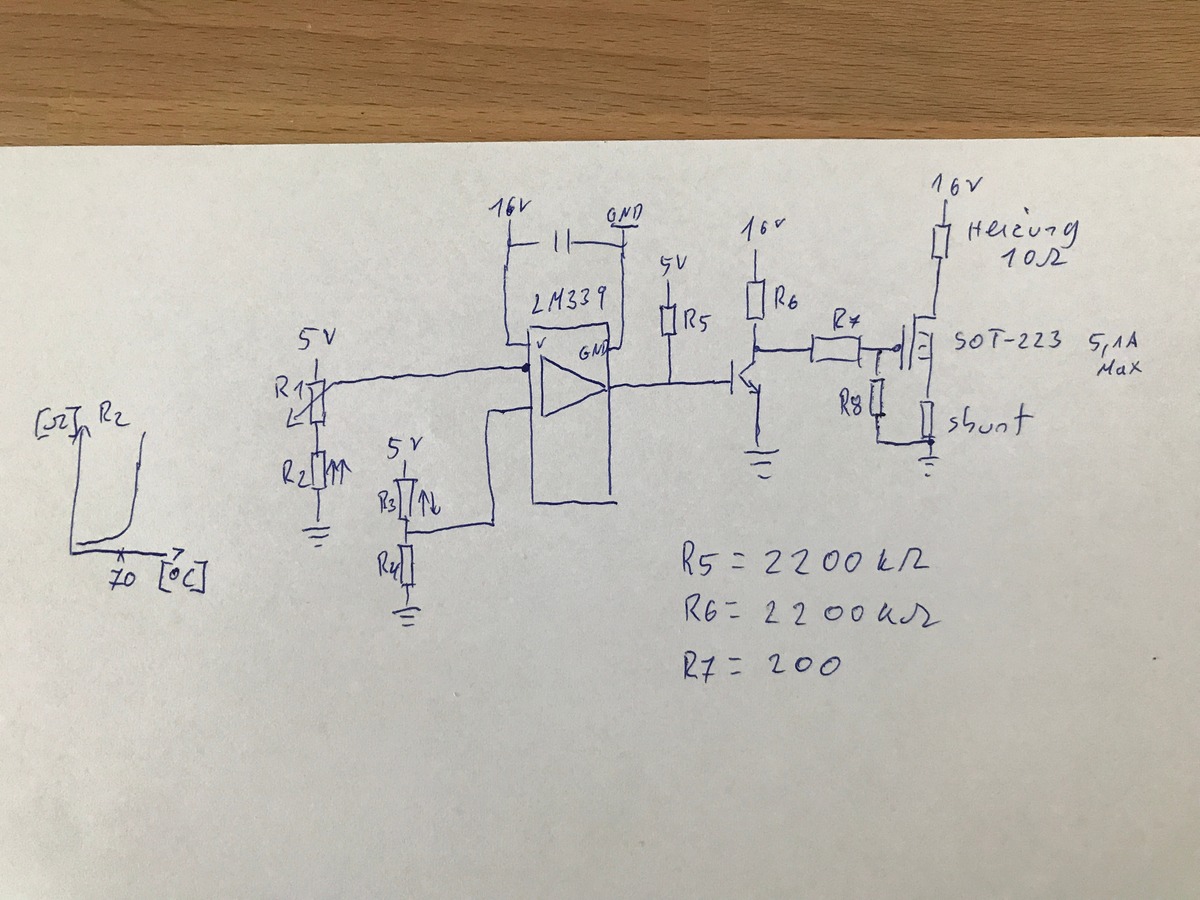 16V
16V
GND
16V
Heizung
10Ω
5V
LM339
R6
R5
R7
5V
V
GND
SOT-223 5,1A
Max
R1
R8
shunt
[Ω] R2
5V
R2 ↑↑
R3 ↑↓
R4
70 [°C]
R5 = 2200 kΩ
R6 = 2200 kΩ
R7 = 200